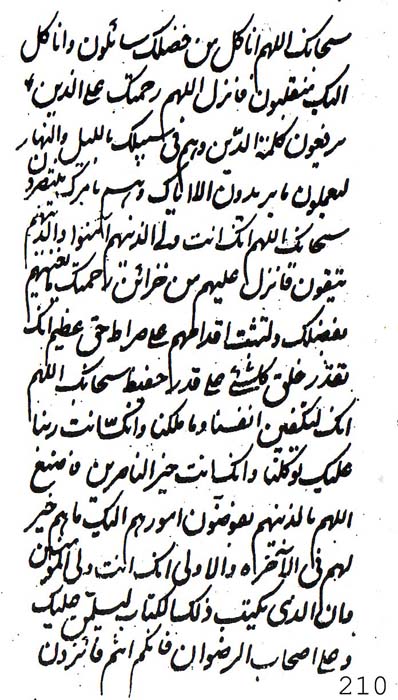 سبحانك اللهم انا كل من فضلك سائلون وانا كل
اليك منقلبون فانزل اللهم رحمتك على الذين
يرفعون كلمة الدين وهم فى سبيلك بالليل والنهار
ليعملون ما يريدون الا اياك وهم بامرك ينتصرون
سبحانك اللهم انك انت ولى الذينهم آمنوا والذينهم
يتيقون فانزل عليهم من خزائن رحمتك ما يغنينهم
بفضلك ولتثبت اقدامهم على صراط حق عظيم انك
تقدر خلق كلشئ على قدر حفيظ سبحانك اللهم
انك لتكفين انفسنا وما ملكنا وانك انت ربنا
عليك توكلنا وانك انت خير الناصرين فاصنع
اللهم بالذينهم يفوضون امورهم اليك ما هم خير
لهم فى الآخرة والاولى انك انت ولى المؤمنين
وان الذى يكتب ذلك الكتاب ليسلمن عليك
وعلى اصحاب الرضوان فانكم انتم فائزون
210